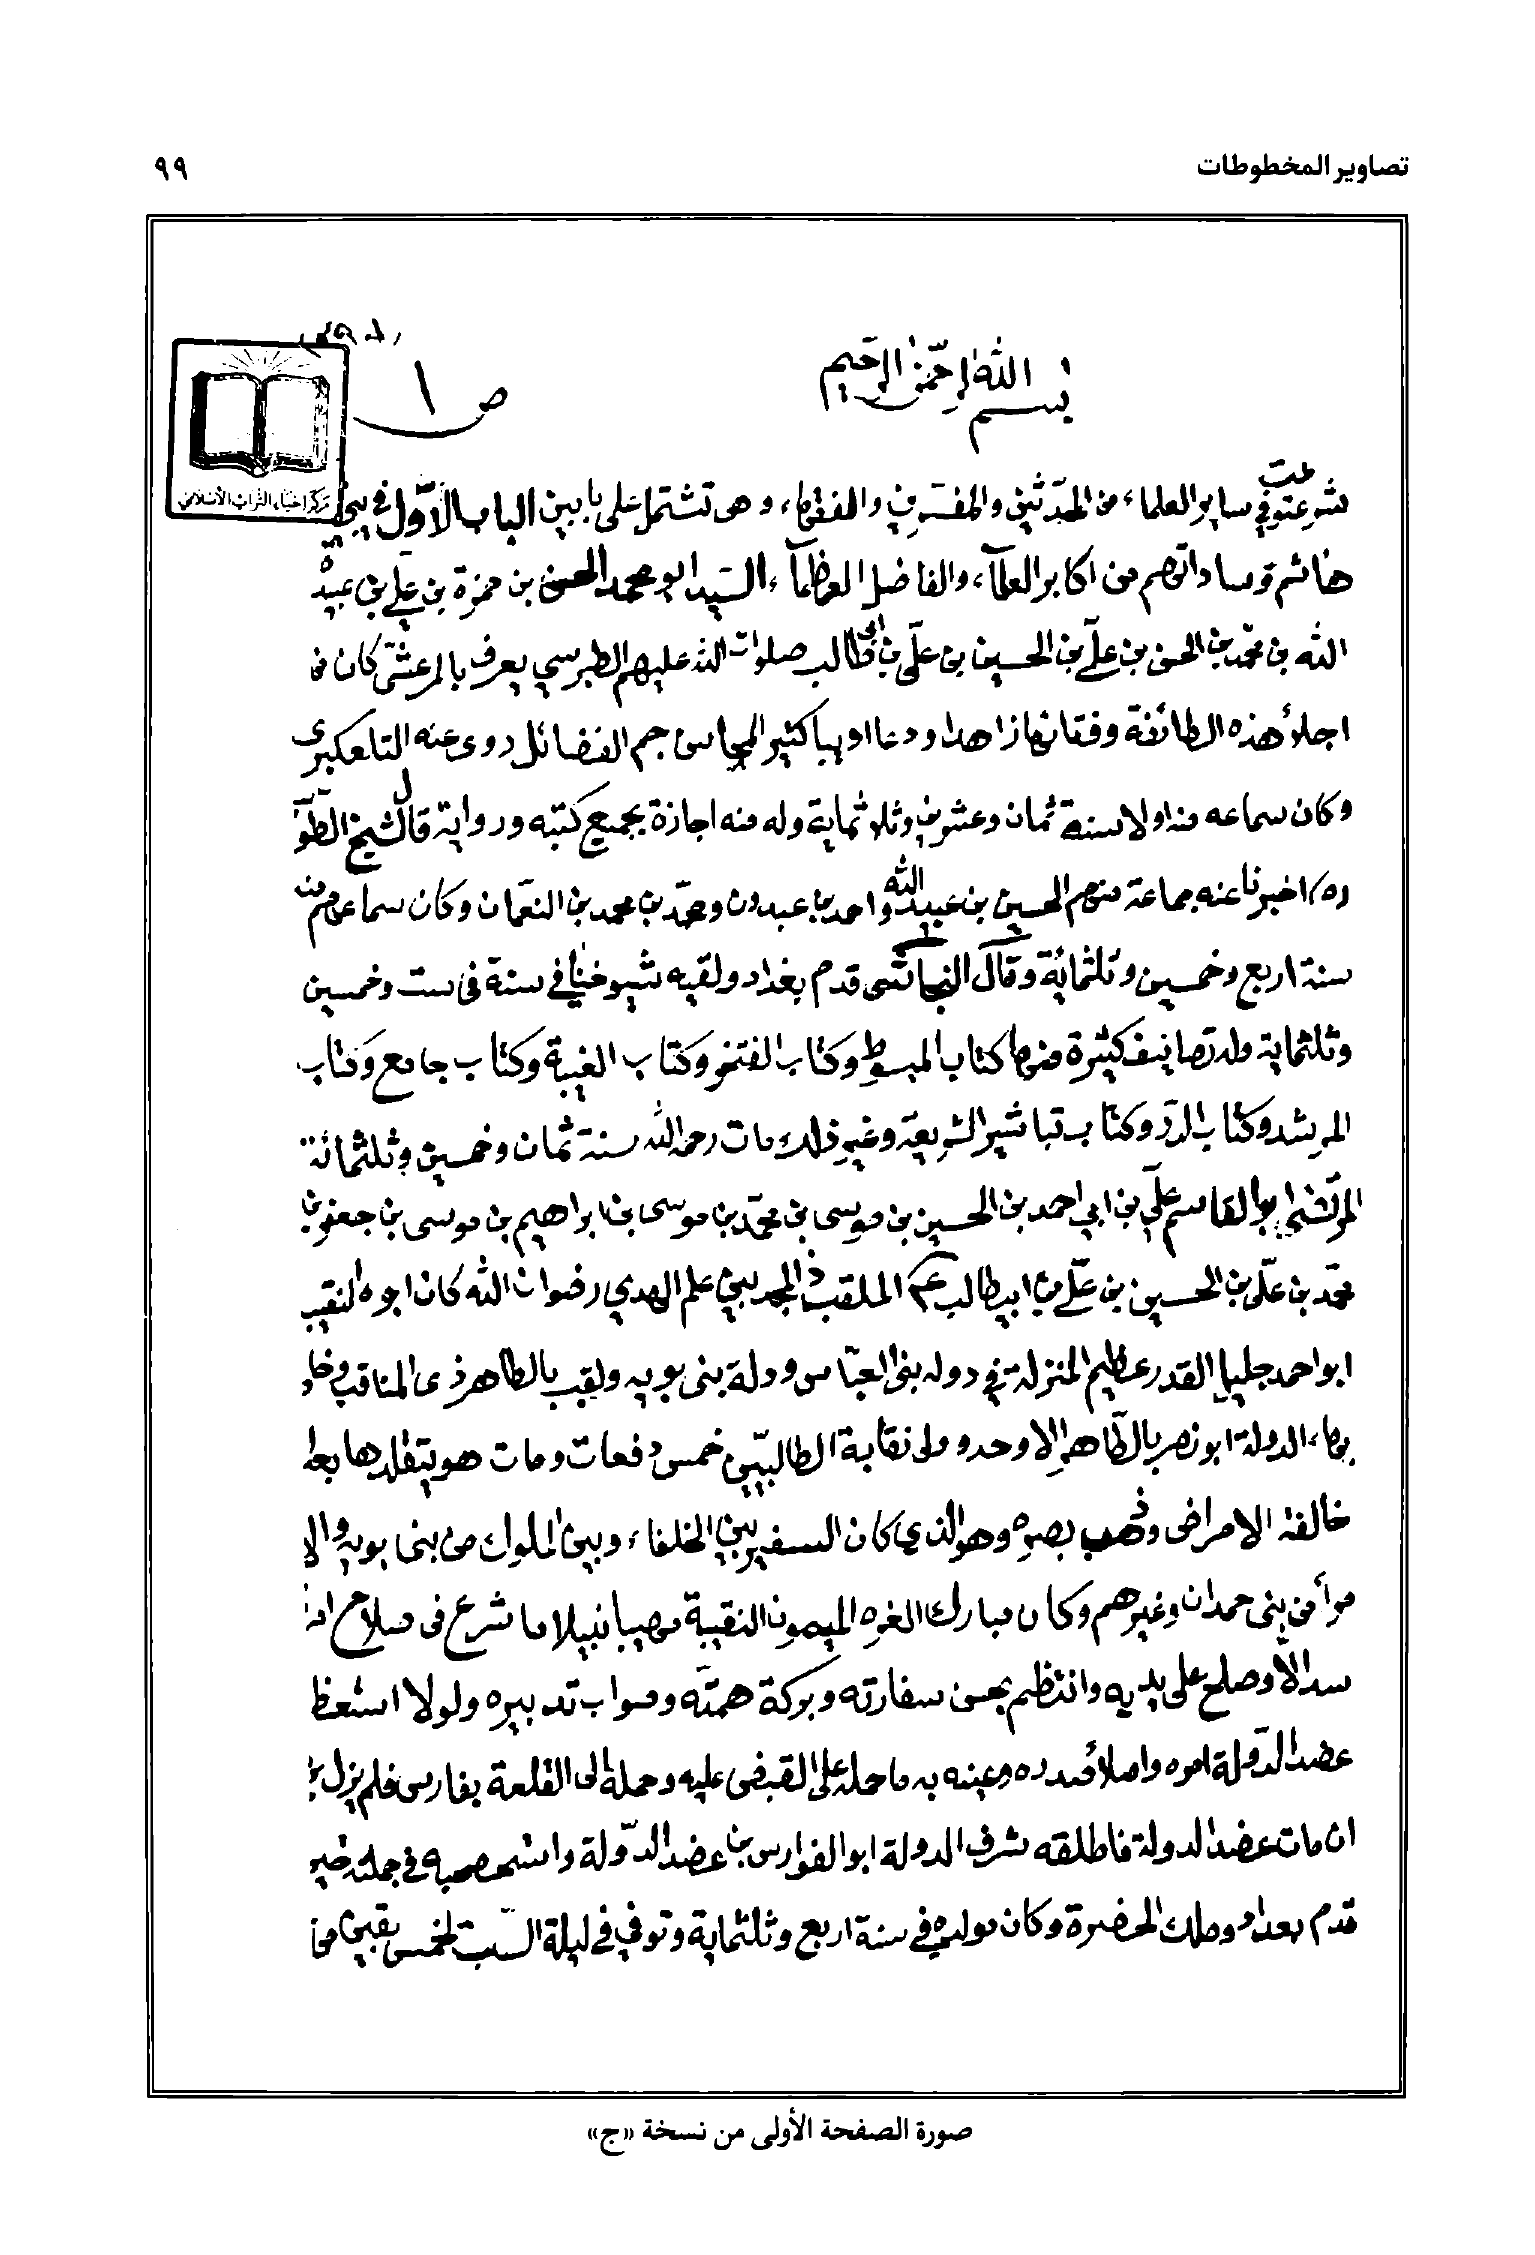 تصاوير المخطوطات
٩٩
بسم الله الرحمن الرحيم
ص ١
مركز احياء التراث الاسلامي
طبت
في ساير العلماء من المحدثين والمفسرين والفقهاء، وهى تشتمل على بابين الباب الأوّل في بني
هاشم وساداتهم من اكابر العلماء، والفاضل العظماء، السيد ابو محمد الحسن بن حمزة بن علي بن عبيد
الله بن محمد بن الحسن بن علي بن الحسين بن علي بن ابي طالب صلوات الله عليهم الطبرسي يعرف بالمرعشي كان من
اجلاء هذه الطائفة وفقهائها زاهدا ورعا اديبا كثير المحاسن جم الفضائل روى عنه التلعكبرى
وكان سماعه منه اولا سنة ثمان وعشرين وثلاثماية وله منه اجازة بجميع كتبه ورواية قال الشيخ الطو
ره اخبرنا عنه جماعة منهم الحسين بن عبيد الله واحمد بن عبدون ومحمد بن محمد بن النعمان وكان سماعهم منه
سنة اربع وخمسين وثلثمائة وقال النجاشى قدم بغداد ولقيه شيوخنا في سنة فى ست وخمسين
وثلثماية وله تصانيف كثيرة منها كتاب المبسوط وكتاب المفتخر وكتاب الغيبة وكتاب جامع وكتاب
المرشد وكتاب الدر وكتاب تباشير الشريعة وغير ذلك مات رحمه الله سنة ثمان وخمسين وثلثمائة
المرتضى ابو القاسم علي بن ابي احمد بن الحسين بن موسى بن محمد بن موسى بن ابراهيم بن موسى بن جعفر بن
محمد بن علي بن الحسين بن علي بن ابيطالب عم الملقب ذا المجدين علم الهدي رضوان الله كان ابوه النقيب
ابو احمد جليل القدر عظيم المنزلة في دوله بنى العباس ودولة بنى بويه ولقب بالطاهر ذى المناقب وخا
بهاء الدولة ابو نصر بالطاهر الاوحد وولى نقابة الطالبيين خمس دفعات ومات هو يتقلدها بعد
خالفته الامراض وذهب بصره وهو الذي كان السفير بين الخلفاء وبين الملوك من بنى بويه والا
مراء من بنى حمدان وغيرهم وكان مبارك الغره الميمون النقيبة مهيبا نبيلا ما شرع فى صلاح امر
سد الا وصلح على يديه وانتظم بحسن سفارته وبركة همته وصواب تدبيره ولولا استعظا
عضد الدولة امره وامتلأ صدره وعينه به ما حمله على القبض عليه وحمله الى القلعة بفارس فلم يزل بها
ان مات عضد الدولة فاطلقه شرف الدولة ابو الفوارس بن عضد الدولة واستصحبه في جملته حين
قدم بغداد وملك الحضرة وكان مولده في سنة اربع وثلثماية وتوفي في ليلة السبت لخمس بقين من
صورة الصفحة الأولى من نسخة «ج»